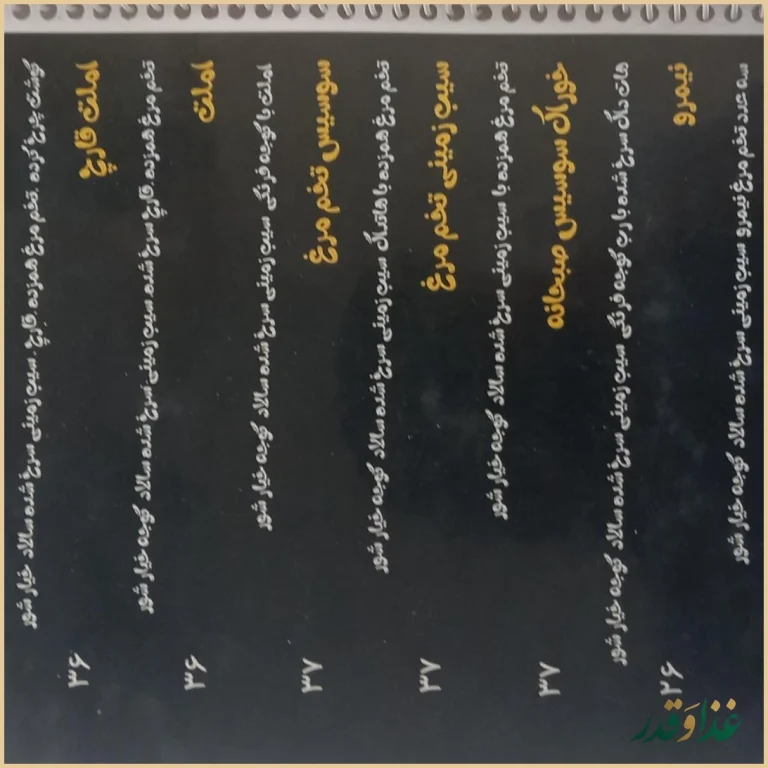 گوشت چرخ کرده. تخم مرغ همزده. قارچ. سیب زمینی سرخ شده سالاد خیار شور
املت قارچ ۳۶
تخم مرغ همزده. قارچ سرخ شده. سیب زمینی سرخ شده سالاد گوجه خیار شور
املت ۳۶
املت با گوجه فرنگی سیب زمینی سرخ شده سالاد گوجه خیار شور
سوسیس تخم مرغ ۳۷
تخم مرغ همزده با هاتداگ سیب زمینی سرخ شده سالاد گوجه خیار شور
سیب زمینی تخم مرغ ۳۷
تخم مرغ همزده با سیب زمینی سرخ شده سالاد گوجه خیار شور
خوراک سوسیس صبحانه ۳۷
هات داگ سرخ شده با رب گوجه فرنگی سیب زمینی سرخ شده سالاد گوجه خیار شور
نیمرو ۲۶
سه عدد تخم مرغ نیمرو سیب زمینی سرخ شده سالاد گوجه خیار شور
غذا و قدر